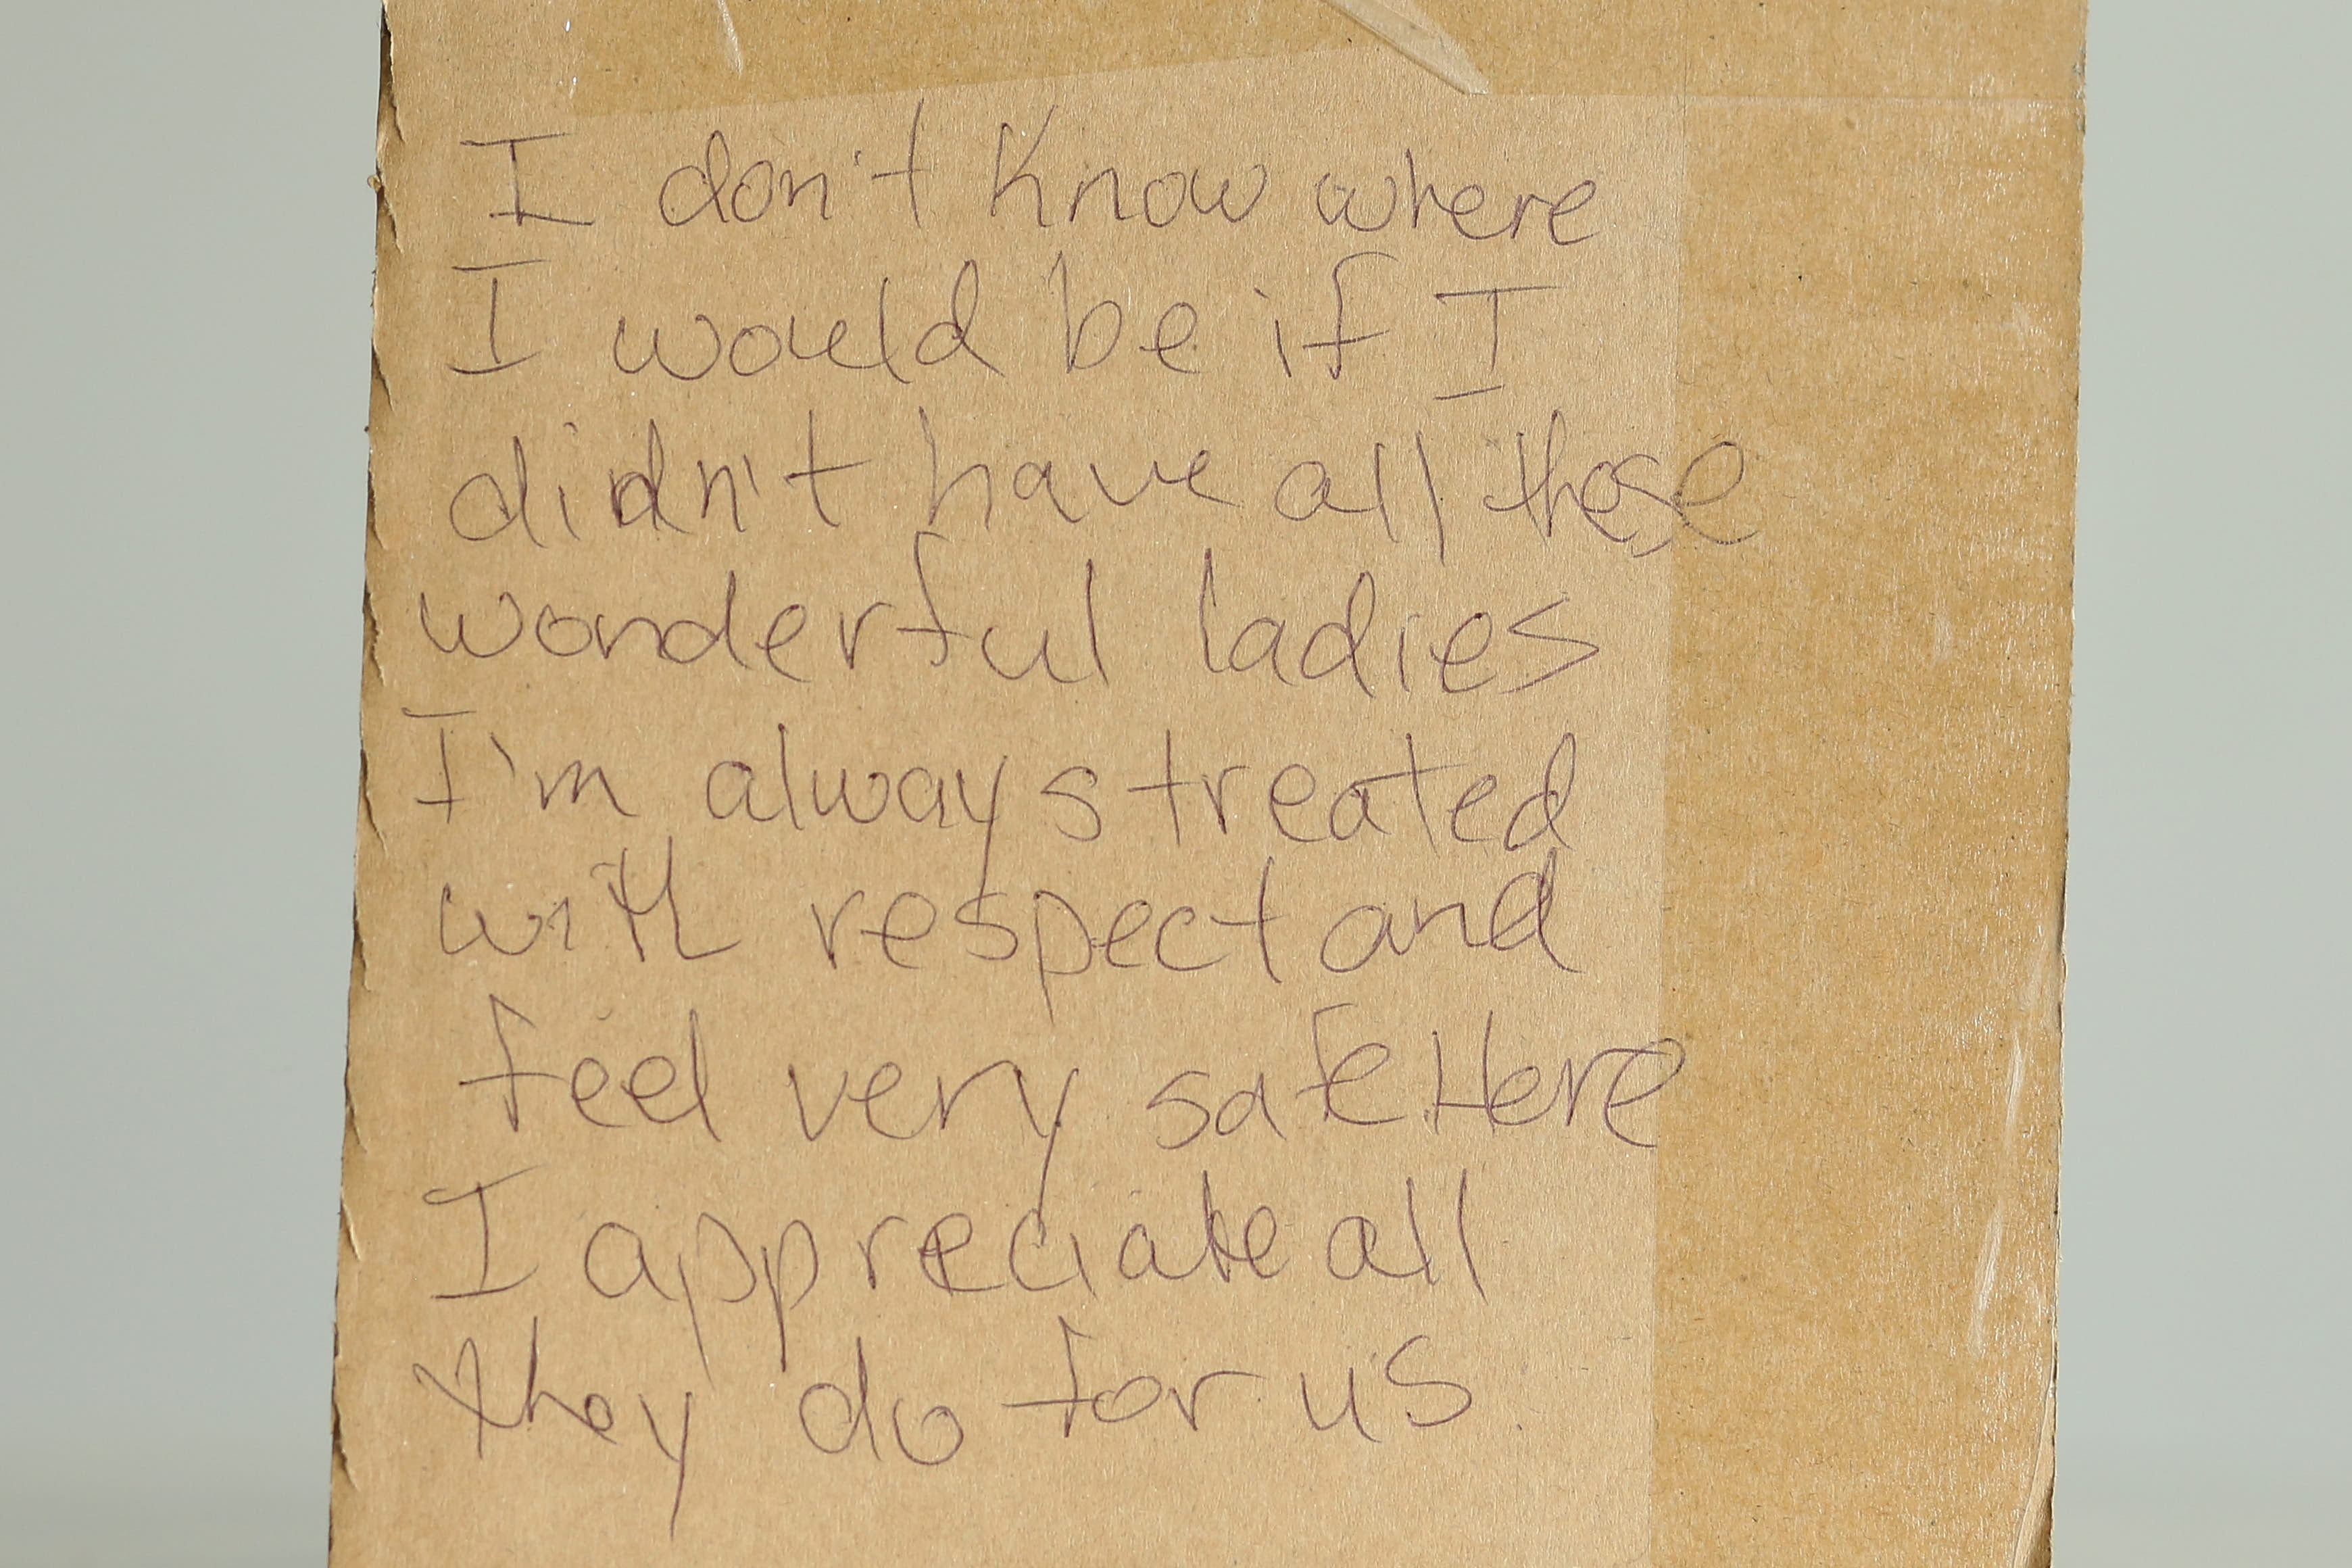 I don't know where
I would be if I
didn't have all these
wonderful ladies
I'm always treated
with respect and
feel very safe Here
I appreciate all
they do for us.